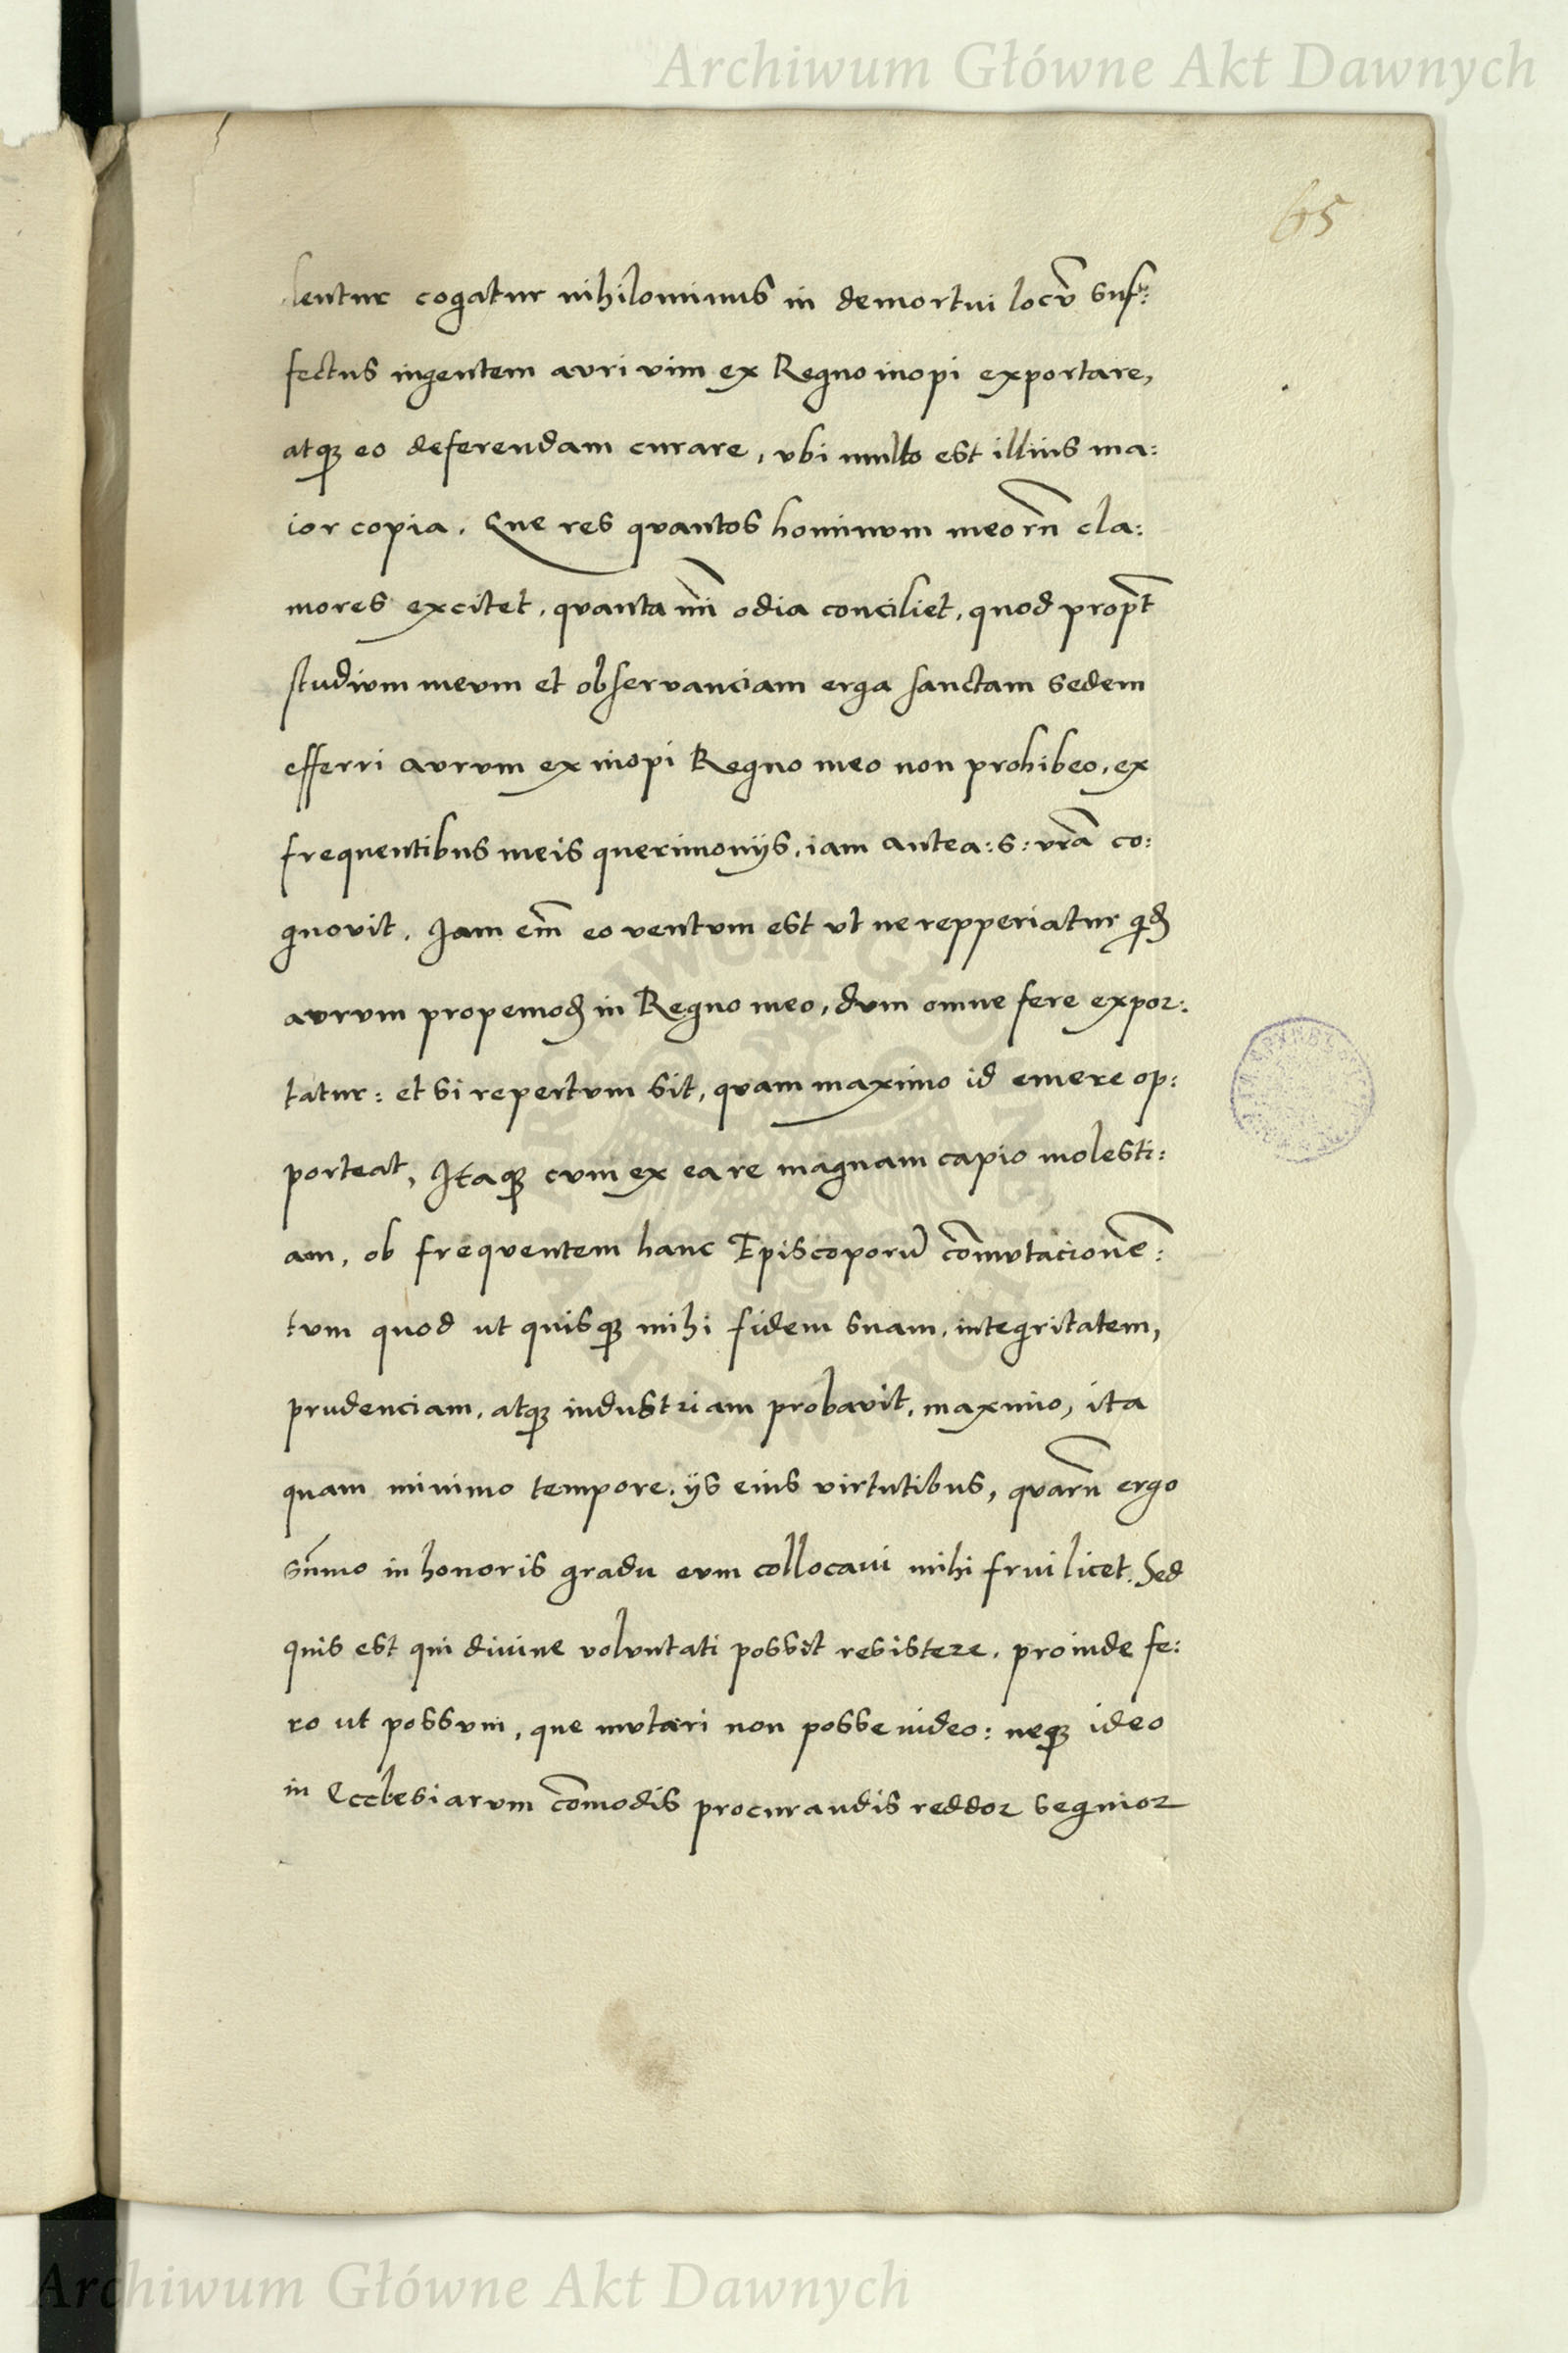 Archiwum Główne Akt Dawnych
65
lentur cogatur nihilominus in demortui locū suf:
fectus ingentem auri vim ex Regno inopi exportare,
atqȝ eo deferendam curare, vbi multo est illius ma:
ior copia. Que res quantos hominum meorū cla:
mores excitet, quanta mī odia conciliet, quod propt̄
studium meum et obseruanciam erga sanctam sedem
efferri aurum ex inopi Regno meo non prohibeo, ex
frequentibus meis querimonijs, iam antea: s: vrā co:
gnouit. Iam em̄ eo ventum est vt ne repperiatur qͥd
aurum propemod in Regno meo, dum omne fere expor:
tatur: et si repertum sit, quam maximo id emere op:
porteat, Itaqȝ cum ex ea re magnam capio molesti:
am, ob frequentem hanc Episcoporū cōmutacionē:
tum quod ut quisqȝ mihi fidem suam, integritatem,
prudenciam, atqȝ industriam probavit, maximo, ita
quam minimo tempore, ijs eius virtutibus, quarū ergo
sūmo in honoris gradu eum collocaui mihi frui licet. Sed
quis est qui diuine voluntati possit resistere. proinde fe:
ro ut possum, que mutari non posse uideo: neqȝ ideo
in Ecclesiarum cōmodis procurandis reddor segnior
ARCHIWUM GŁÓWNE AKT DAWNYCH
Archiwum Główne Akt Dawnych